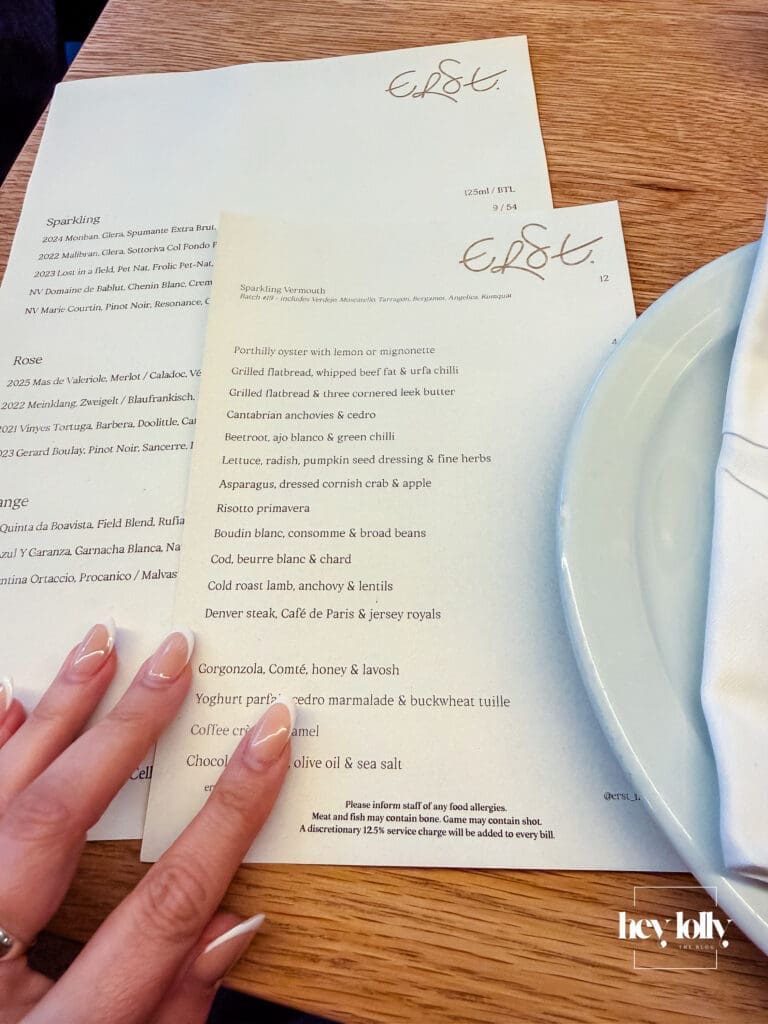 ERST.
125ml / BTL
9 / 54
Sparkling
2024 Moriban, Glera, Spumante Extra Brut,
2022 Malibran, Glera, Sottoriva Col Fondo
2023 Lost in a field, Pet Nat, Frolic Pet-Nat,
NV Domaine de Bablut, Chenin Blanc, Crem
NV Marie Courtin, Pinot Noir, Resonance, C
Rose
2025 Mas de Valeriole, Merlot / Caladoc, Vé
2022 Meinklang, Zweigelt / Blaufrankisch,
2021 Vinyes Tortuga, Barbera, Doolittle, Ca
023 Gerard Boulay, Pinot Noir, Sancerre,
ange
Quinta da Boavista, Field Blend, Rufia
zul Y Garanza, Garnacha Blanca, Na
ntina Ortaccio, Procanico / Malvas
Cell
ERST.
12
Sparkling Vermouth
Batch #19 - includes Verdejo, Moscatello, Tarragon, Bergamot, Angelica, Kumquat
4
Porthilly oyster with lemon or mignonette
Grilled flatbread, whipped beef fat & urfa chilli
Grilled flatbread & three cornered leek butter
Cantabrian anchovies & cedro
Beetroot, ajo blanco & green chilli
Lettuce, radish, pumpkin seed dressing & fine herbs
Asparagus, dressed cornish crab & apple
Risotto primavera
Boudin blanc, consomme & broad beans
Cod, beurre blanc & chard
Cold roast lamb, anchovy & lentils
Denver steak, Café de Paris & jersey royals
Gorgonzola, Comté, honey & lavosh
Yoghurt parfa cedro marmalade & buckwheat tuille
Coffee cr amel
Chocol , olive oil & sea salt
er
@erst_
Please inform staff of any food allergies.
Meat and fish may contain bone. Game may contain shot.
A discretionary 12.5% service charge will be added to every bill.
hey lolly
THE BLOG